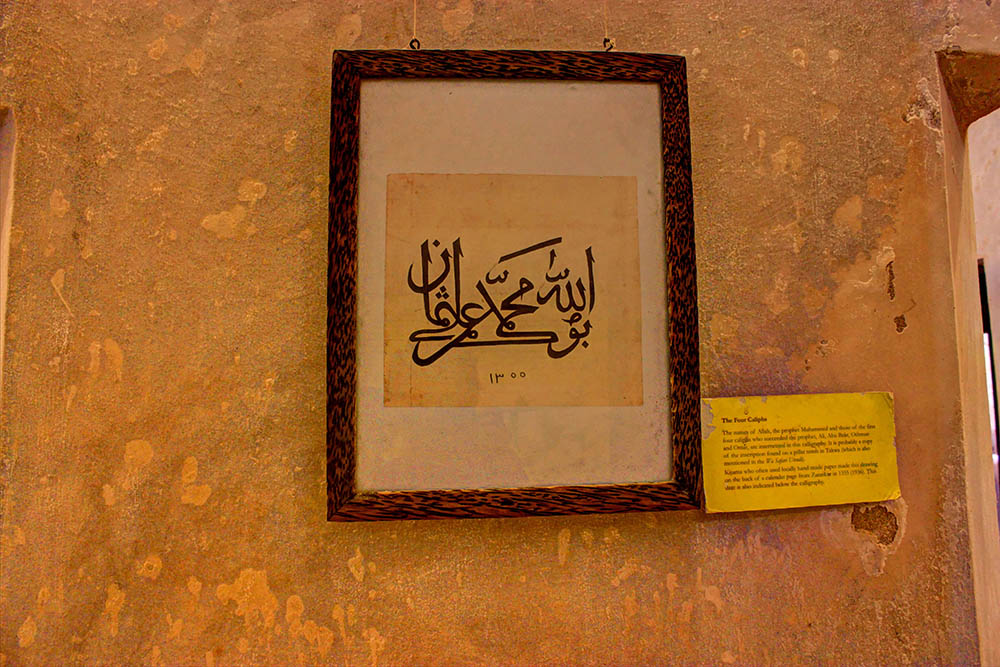 الله محمد بوبكر عمر عثمان علي
١٣٥٥
The Four Caliphs
The names of Allah, the prophet Muhammad and those of the first
four caliphs who succeeded the prophet, Ali, Abu Bakr, Othman
and Omar, are intertwined in this calligraphy. It is probably a copy
of the inscription found on a pillar tomb in Takwa (which is also
mentioned in the Wa
Kijuma who often used locally hand made paper made this drawing
on the back of a calendar page from Zanzibar in 1355 (1936). This
date is also indicated below the calligraphy.